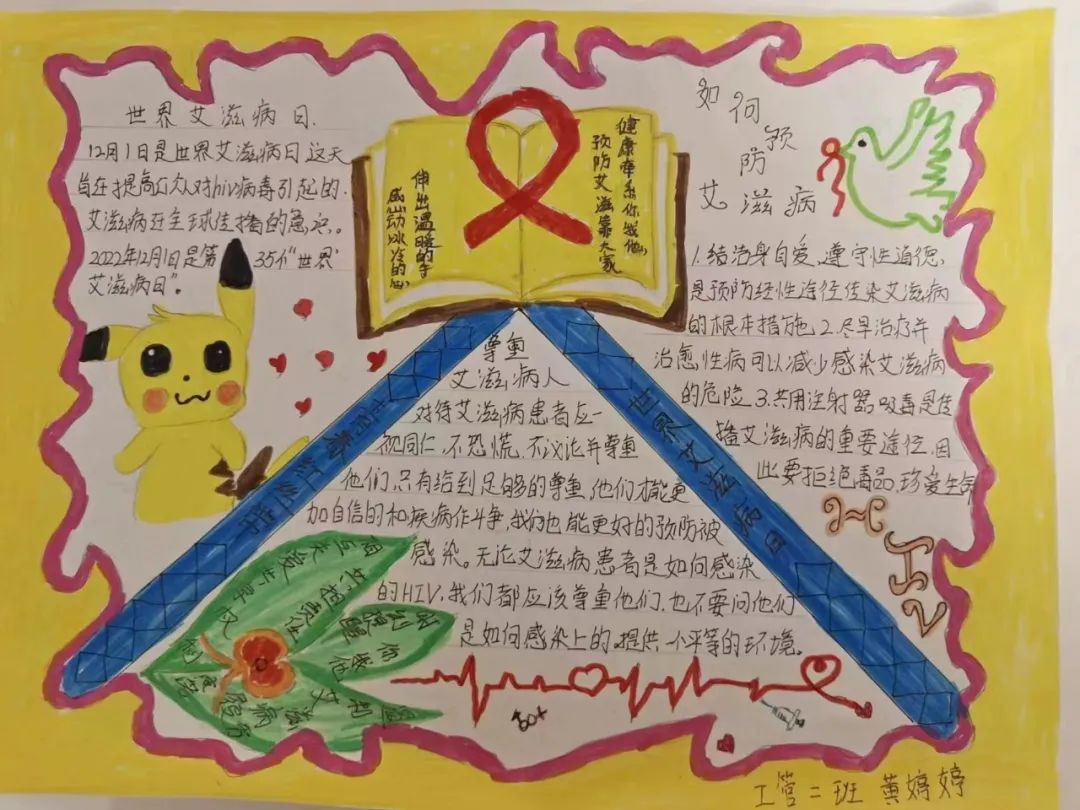 世界艾滋病日.
12月1日是世界艾滋病日这天
旨在提高公众对hiv病毒引起的
艾滋病在全球传播的意识。
2022年12月1日是第35个“世界
艾滋病日”。
伸出温暖的手
感动冰冷的心
健康牵系你我他
预防艾滋靠大家
如何预防
艾滋病
1.结洁身自爱、遵守性道德,
是预防经性途径传染艾滋病
的根本措施.2.尽早治疗并
治愈性病可以减少感染艾滋病
的危险3.共用注射器吸毒是传
播艾滋病的重要途径,因
此要拒绝毒品,珍爱生命
尊重
艾滋病人
对待艾滋病患者应一
视同仁,不恐慌,不议论并尊重
他们,只有给到足够的尊重,他们才能更
加自信的和疾病作斗争,我们也能更好的预防被
感染。无论艾滋病患者是如何感染
的HIV,我们都应该尊重他们,也不要问他们
是如何感染上的,提供一个平等的环境。
青春红丝带
世界艾滋病日
相互关爱共享
共担责任
艾滋
HIV
工管二班 黄婷婷